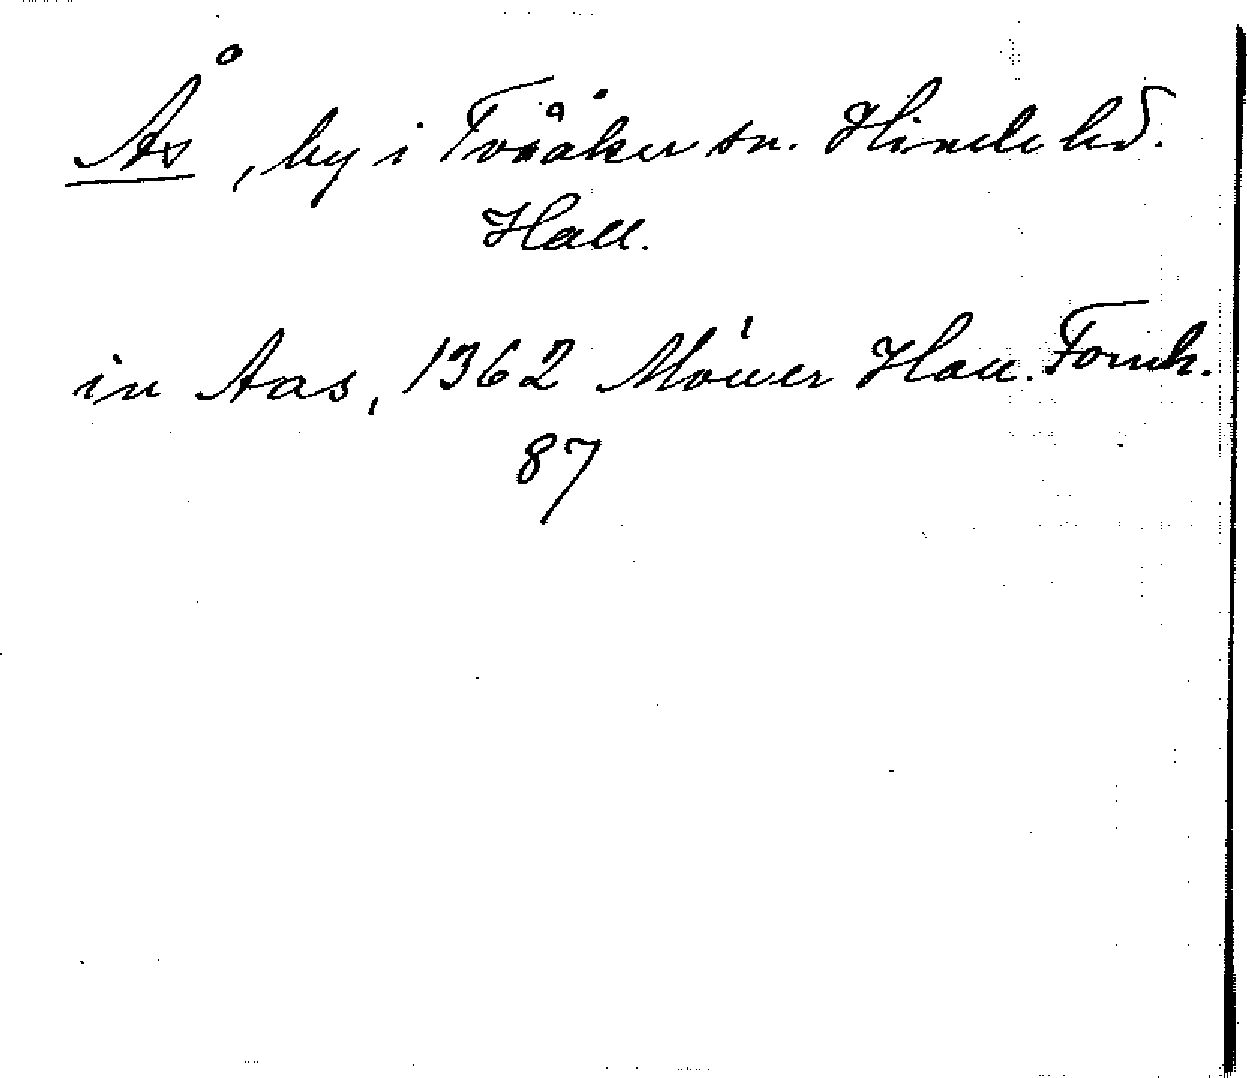 Ås, by i Tvååker sn. Himle hd.
Hall.
in Aas, 1362 Hall. Fornh.
87